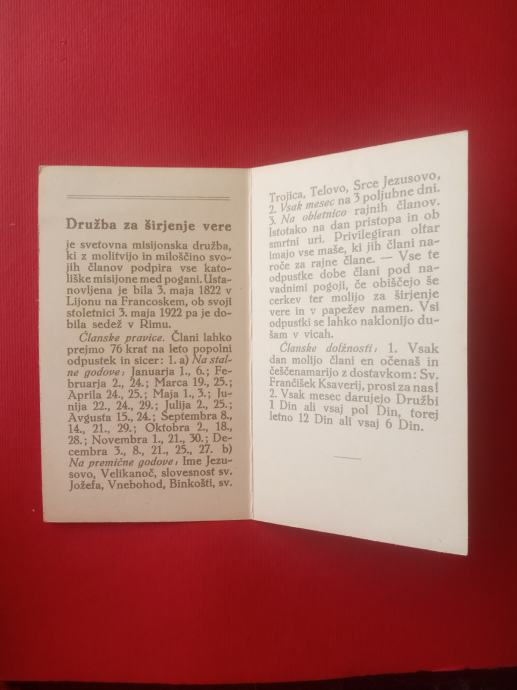 Družba za širjenje vere
je svetovna misijonska družba,
ki z molitvijo in miloščino svo-
jih članov podpira vse kato-
liške misijone med pogani. Usta-
novljena je bila 3. maja 1822 v
Lijonu na Francoskem, ob svoji
stoletnici 3. maja 1922 pa je do-
bila sedež v Rimu.
Članske pravice. Člani lahko
prejmo 76 krat na leto popolni
odpustek in sicer: 1. a) Na stal-
ne godove: Januarja 1., 6.; Fe-
bruarja 2., 24.; Marca 19., 25.;
Aprila 24., 25.; Maja 1., 3.; Ju-
nija 22., 24., 29.; Julija 2., 25.;
Avgusta 15., 24.; Septembra 8.,
14., 21., 29.; Oktobra 2., 18.,
28.; Novembra 1., 21., 30.; De-
cembra 3., 8., 21., 25., 27. b)
Na premične godove: Ime Jezu-
sovo, Velikanoč, slovesnost sv.
Jožefa, Vnebohod, Binkošti, sv.
Trojica, Telovo, Srce Jezusovo,
2. Vsak mesec na 3 poljubne dni.
3. Na obletnico rajnih članov.
Istotako na dan pristopa in ob
smrtni uri. Privilegiran oltar
imajo vse maše, ki jih člani na-
roče za rajne člane. — Vse te
odpustke dobe člani pod na-
vadnimi pogoji, če obiščejo še
cerkev ter molijo za širjenje
vere in v papežev namen. Vsi
odpustki se lahko naklonijo du-
šam v vicah.
Članske dolžnosti: 1. Vsak
dan molijo člani en očenaš in
češčenamarijo z dostavkom: Sv.
Frančišek Ksaverij, prosi za nas!
2. Vsak mesec darujejo Družbi
1 Din ali vsaj pol Din, torej
letno 12 Din ali vsaj 6 Din.